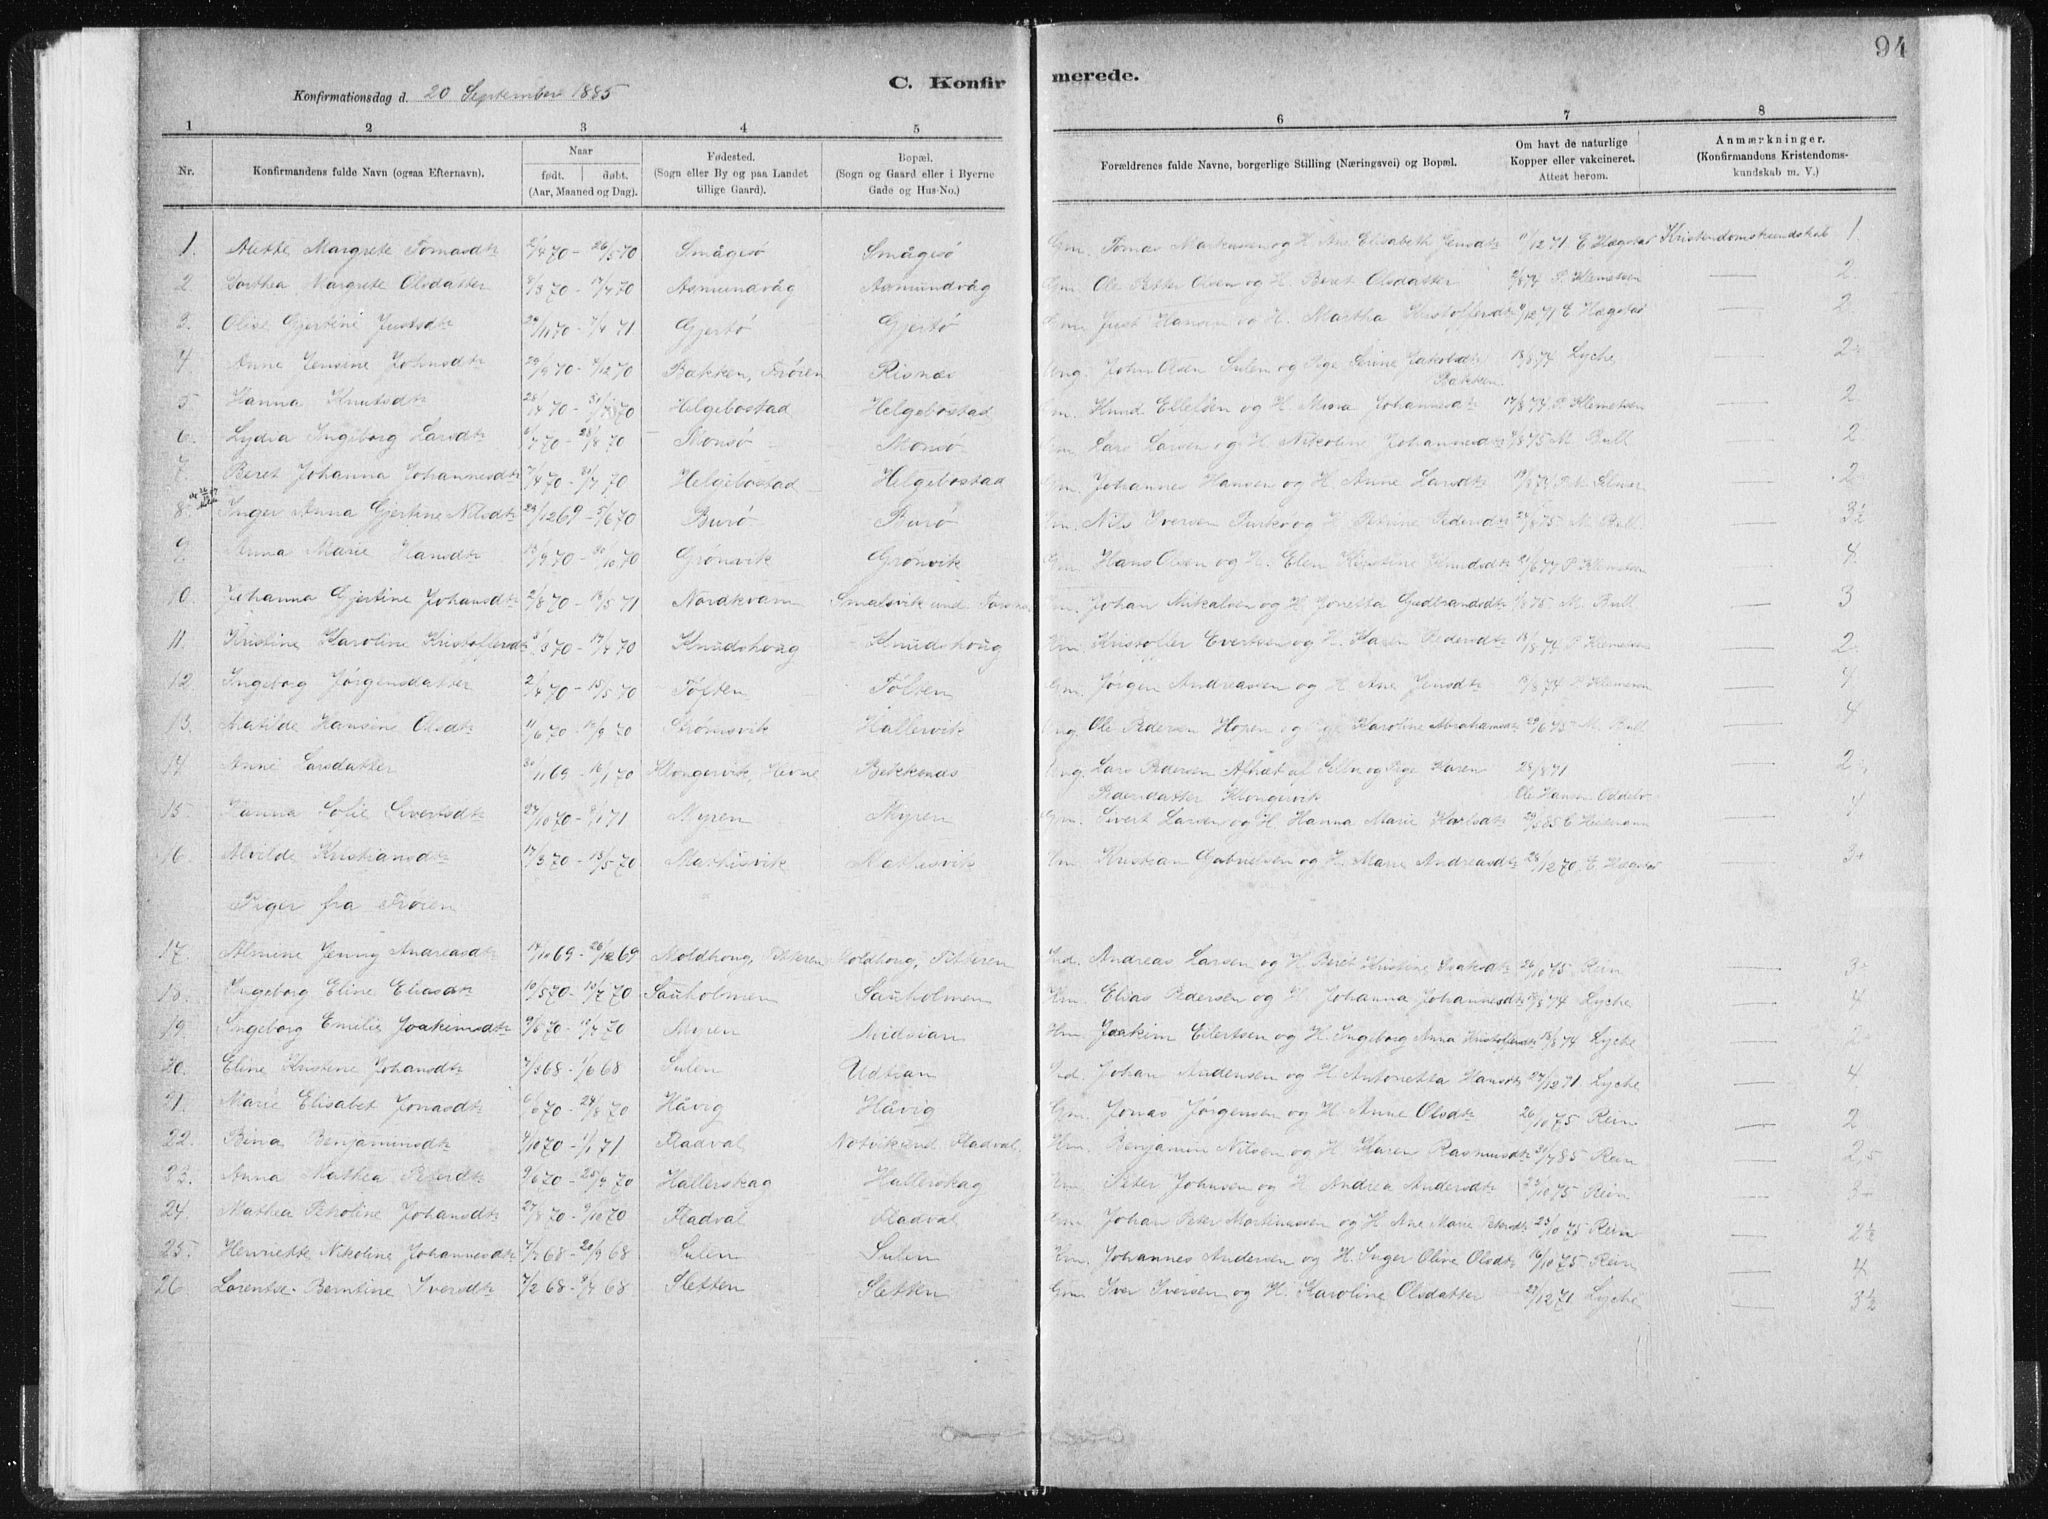 94
C. Konfirmerede.
Konfirmationsdag d. 20 September 1885
1 2 3 4 5 6 7 8
Nr. Konfirmandens fulde Navn (ogsaa Efternavn). Naar født. døbt. (Aar, Maaned og Dag). Fødested. (Sogn eller By og paa Landet tillige Gaard). Bopæl. (Sogn og Gaard eller i Byerne Gade og Hus-No.) Forældrenes fulde Navne, borgerlige Stilling (Næringsvei) og Bopæl. Om havt de naturlige Kopper eller vakcineret. Attest herom. Anmærkninger. (Konfirmandens Kristendomskundskab m. V.)
1. Alette Margrete Tomasdtr 2/4 70 - 26/5 70 Smågesø Smågesø Gm. Tomas Markussen og H. Ane Elisabeth Jensdtr 11/12 71 E Hægstad Kristendomskundskab 1.
2 Dorthea Margrete Olsdatter 8/3 70 - 17/4 70 Asmundvåg Asmundvåg Gm. Ole Petter Olsen og H. Beret Olsdatter P. Klemetsen — 2
3. Olise Gjertine Justsdtr 29/11 70 - 7/4 71 Gjertø Gjertø Gm. Just Hansen og H. Martha Kristoffersdtr 11/12 71 E Hægstad — 2
4 Anne Jensine Johnsdtr 29/9 70 - 4/12 70 Bakken, Frøien Risnæs Ung. John Olsen Sulen og Pige Serine Jakobsdtr Bakken 18/8 74 Lyche — 2
5 Hanna Knutsdtr 28/4 70 - 31/7 70 Helgebostad Helgebostad Gm. Knud Ellefsen og H. Johannesdtr 17/8 74 P. Klemetsen — 2
6. Lydia Ingeborg Larsdtr 6/7 70 - 28/8 70 Monsø Monsø Gm. Lars Larsen og H. Nikoline Johannesdtr M. Bull — 2
7. Beret Johanna Johannesdtr 7/4 70 - 31/7 70 Helgebostad Helgebostad Gm. Johannes Hansen og H. Anne Larsdtr 19/8 74 — 2
8 Inger Anna Gjertine Nilsdtr 29/12 69 - 5/6 70 Burø Burø Nils Iversen og H. Petrine Pedersdtr M. Bull — 3½
9 Anna Marie Hansdtr 70 - 30/10 70 Grønsvik Grønvik Gm. Hans Olsen og H. Elen Kirstine Knudsdtr P Klemetsen — 4.
10. Johanna Gjertine Johansdtr 2/8 70 - 18/5 71 Nordkvam Smalsvik und. Johan Nikolsen og H. Jonetta Gudbrandsdtr M. Bull — 3
11. Kristine Karoline Kristoffersdtr 70 - 17/4 70 Knudshoug Knudshoug Hm. Kristoffer Evertsen og H. Karen Pedersdtr 18/8 74 P Klemetsen — 2
12 Ingeborg Jørgensdatter 2/4 70 - 15/5 70 Tolten Tolten Gm. Jørgen Andreassen og H. Ane Jensdtr 19/8 74 P Klemetsen — 4
13. Matilde Hansine Olsdtr 11/6 70 - 70 Strømsvik Hallervik Ung. Ole Pedersen Hopen og Pige Karoline Abrahamsdtr 29/6 75 M. Bull — 4
14 Anne Larsdatter 30/11 69 - 16/1 70 Klongervik, Hevne Bekkenæs Ung. Lars Pedersen og Pige Karen Pedersdatter Klongervik 28/8 71 Ole Hansen — 2
15 Hanna Sofie Sivertsdtr 27/10 70 - 71 Myren Myren Gm. Sivert Larsen og H. Hanna Marie Karlsdtr — 4
16. Alvilde Kristiansdtr 17/3 70 - 15/5 70 Mathisvik Mathisvik Kristian Gabrielsen og H. Marie Andreasdtr 28/12 70 E Hægstad — 3
Piger fra Frøien
17. Almine Jenny Andreasdtr 14/10 69 - 26/12 69 Moldhoug, Titteren Moldhoug, Titteren Ind. Andreas Larsen og H Beret Kristine 26/10 75 Rein — 3
18. Ingeborg Eline Eliasdtr 10/5 70 - 70 Sauholmen Sauholmen Hm. Elias Pedersen og H. Johanna Johannesdtr 18/8 74 Lyche — 4
19. Ingeborg Emilie Joakimsdtr 9/6 70 - 70 Myren Midsian Hm. Joakim Eilertsen og H. Ingeborg Anna Kristoffersdtr 18/8 74 Lyche — 2
20. Eline Kristine Johansdtr 7/3 68 - 1/6 68 Sulen Udsian Ind. Johan og H. Antonetta Hansdtr 27/12 71 Lyche — 4
21. Marie Elisabet Jonasdtr 6/6 70 - 24/8 70 Håvig Håvig Gm. Jonas Jørgensen og H. Anne Olsdtr 26/10 75 Rein — 2
22. Bina Benjaminsdtr 4/10 70 - 1/1 71 Fladval Notvik und Fladval Hm. Benjamin Nilsen og H. Karen Rasmusdtr 85 Rein — 2,5
23. Anna Mathea Petersdtr 9/6 70 - 70 Hallerskag Hallerskag Hm. Peter Johnsen og H. Andrea Andersdtr 23/10 75 Rein — 3
24. Mathea Petroline Johansdtr 27/8 70 - 9/10 70 Fladval Fladval Gm. Johan Peter Martinussen og H Ane Marie Petersdtr 23/10 75 Rein — 2½
25. Henriette Nikoline Johannesdtr 68 - 20/9 68 Sulen Sulen Hm. Johannes Andersen og H. Inger Oline Olsdtr 16/10 75 Rein — 4
26. Lorentse Berntine Iversdtr 7/2 68 - 68 Sletten Sletten Gm. Iver Iversen og H. Karoline Olsdatter 27/12 71 Lyche — 3½